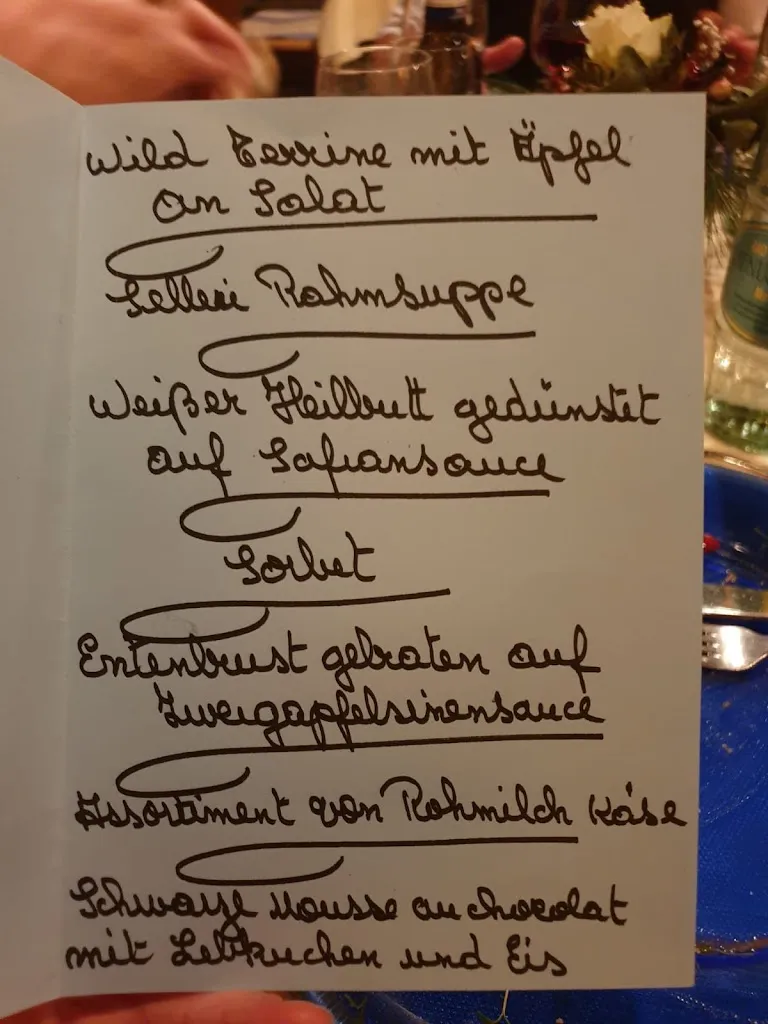 Wild Terrine mit Äpfel
an Salat
Sellerie Rahmsuppe
Weißer Heilbutt gedünstet
auf Safransauce
Sorbet
Entenbrust gebraten auf
Zwergapfelsinensauce
Assortiment von Rohmilch Käse
Schwarze Mousse au chocolat
mit Lebkuchen und Eis